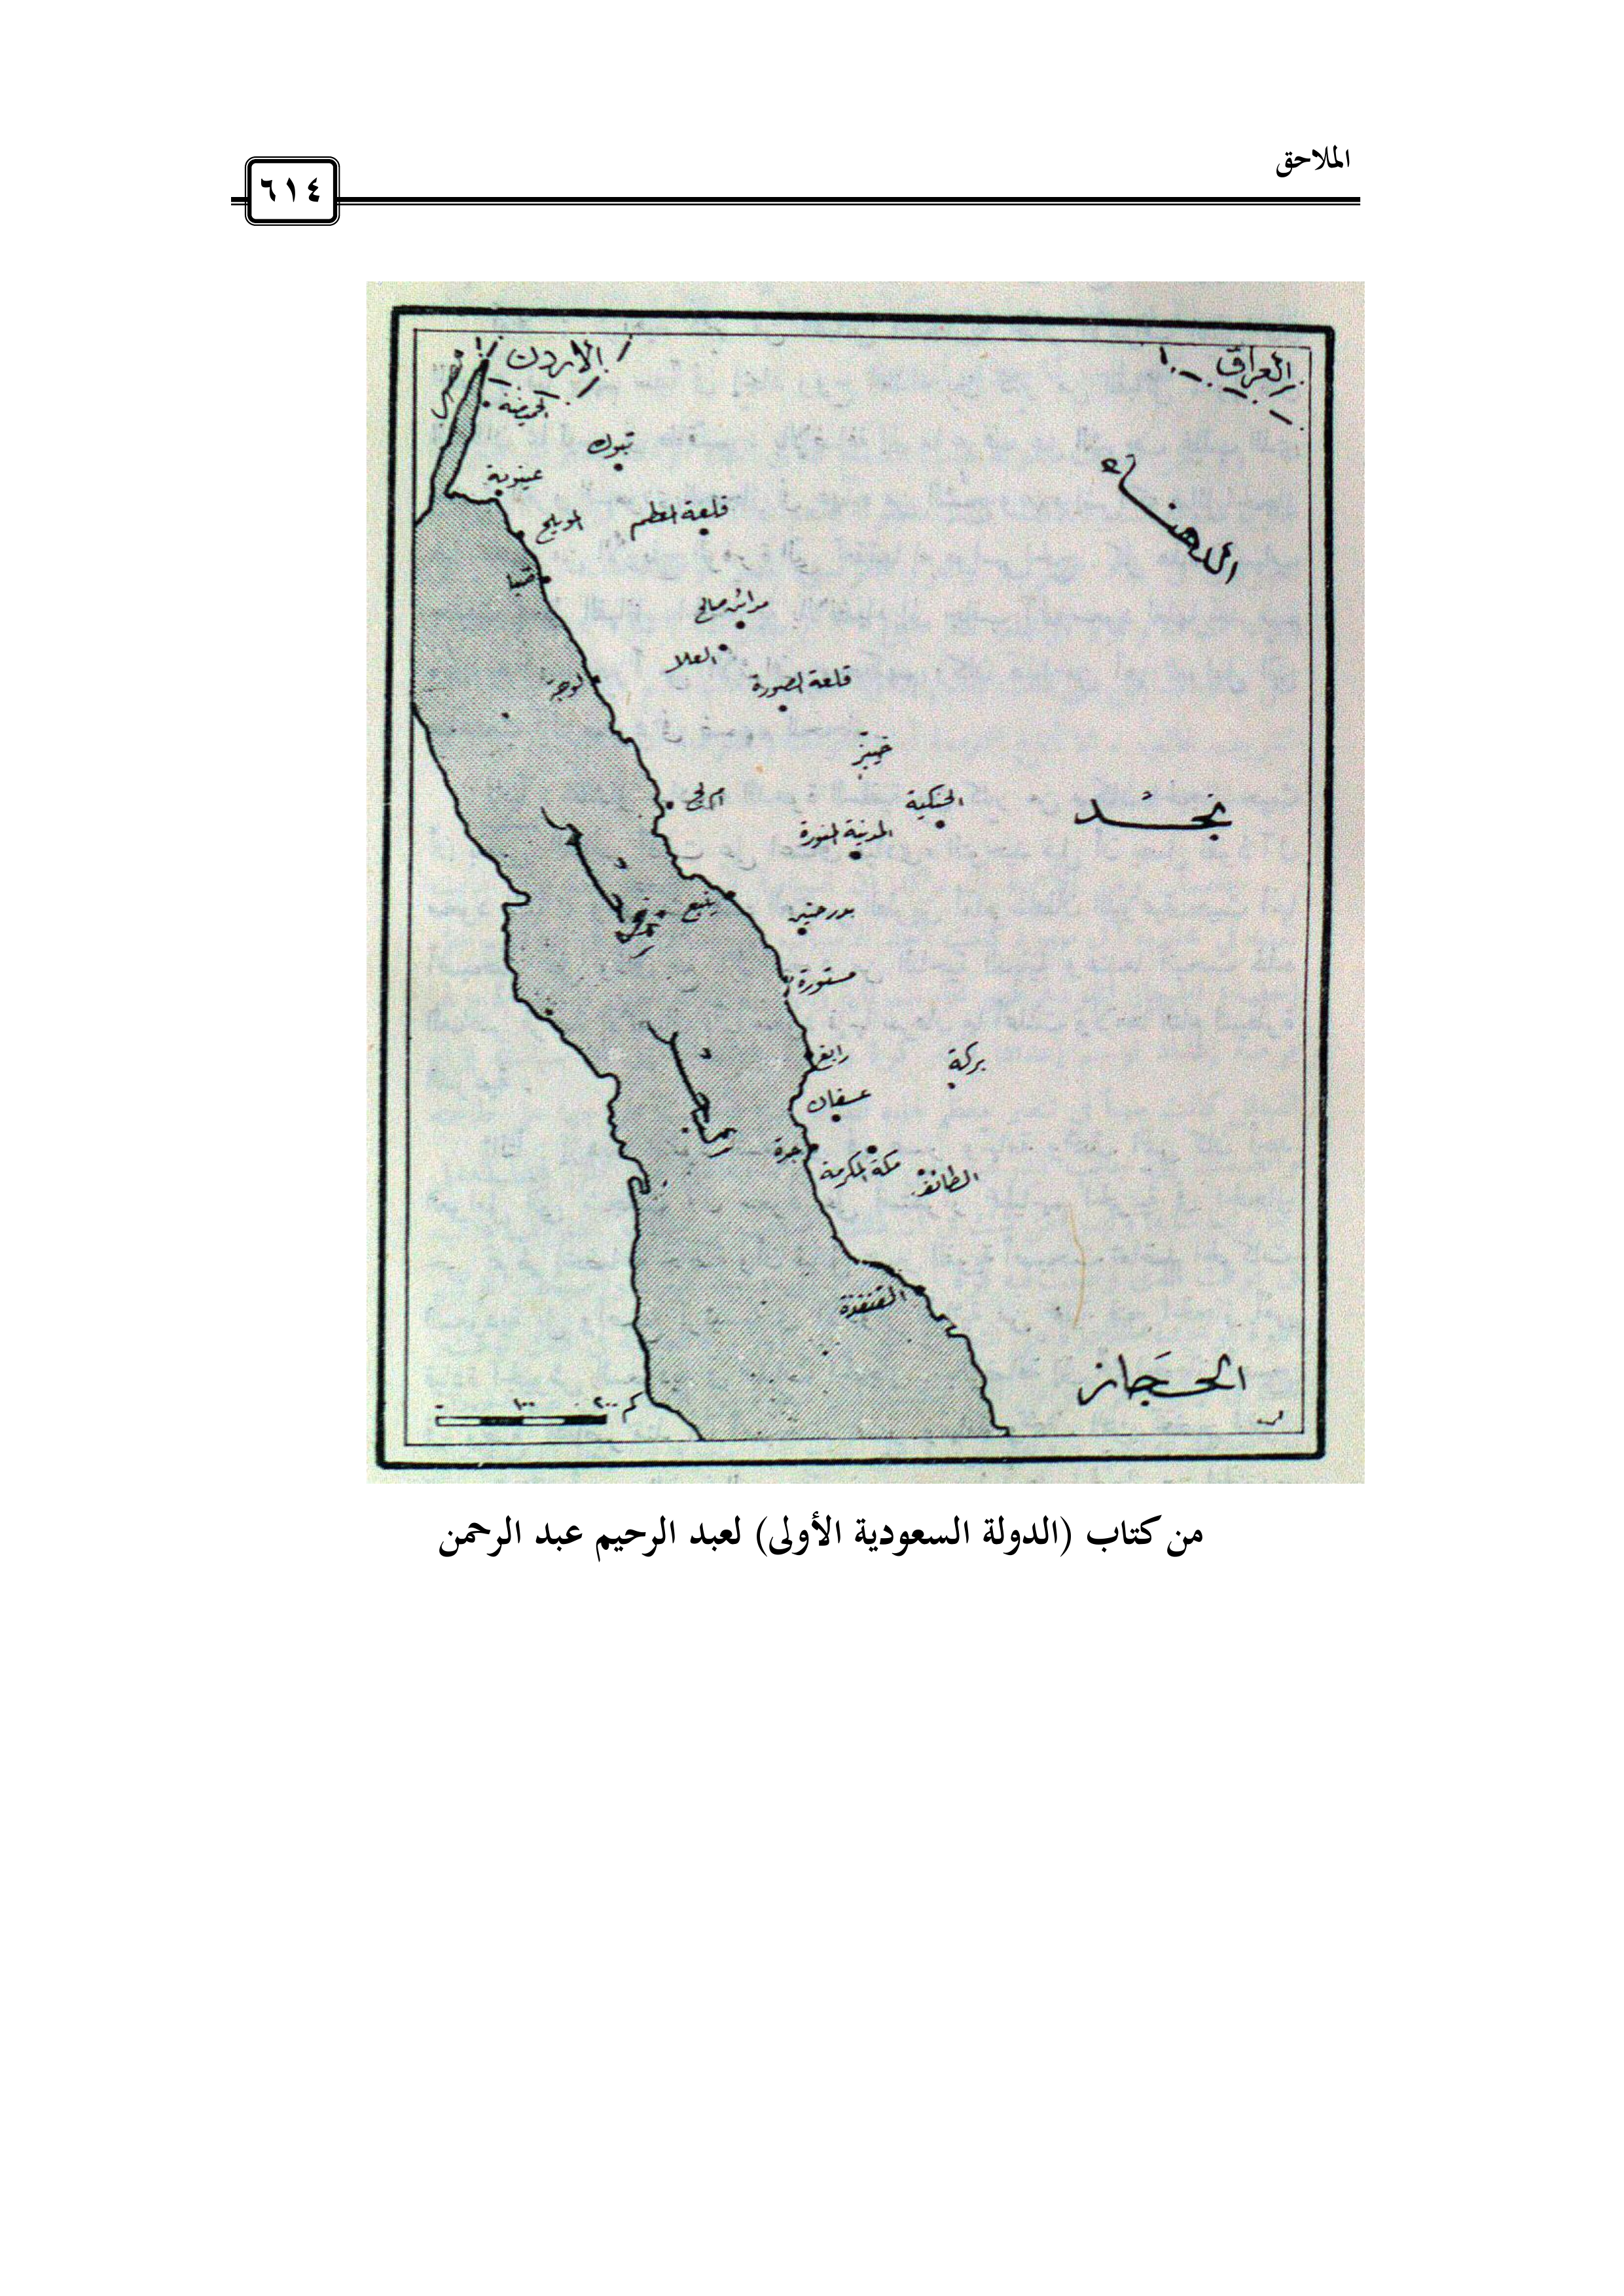 الملاحق
٦١٤
الأردن
العراق
مصر
الحميضة
تبوك
عينونة
المويلح
قلعة المعظم
الدهناء
ضبا
مدائن صالح
العلا
قلعة الصورة
الوجه
خيبر
الحنكية
نجد
أملج
المدينة المنورة
ينبع
بدر حنين
مستورة
رابغ
بركة
عسفان
جدة
مكة المكرمة
الطائف
القنفذة
الحجاز
٠ ١٠٠ ٢٠٠ كم
من كتاب (الدولة السعودية الأولى) لعبد الرحيم عبد الرحمن